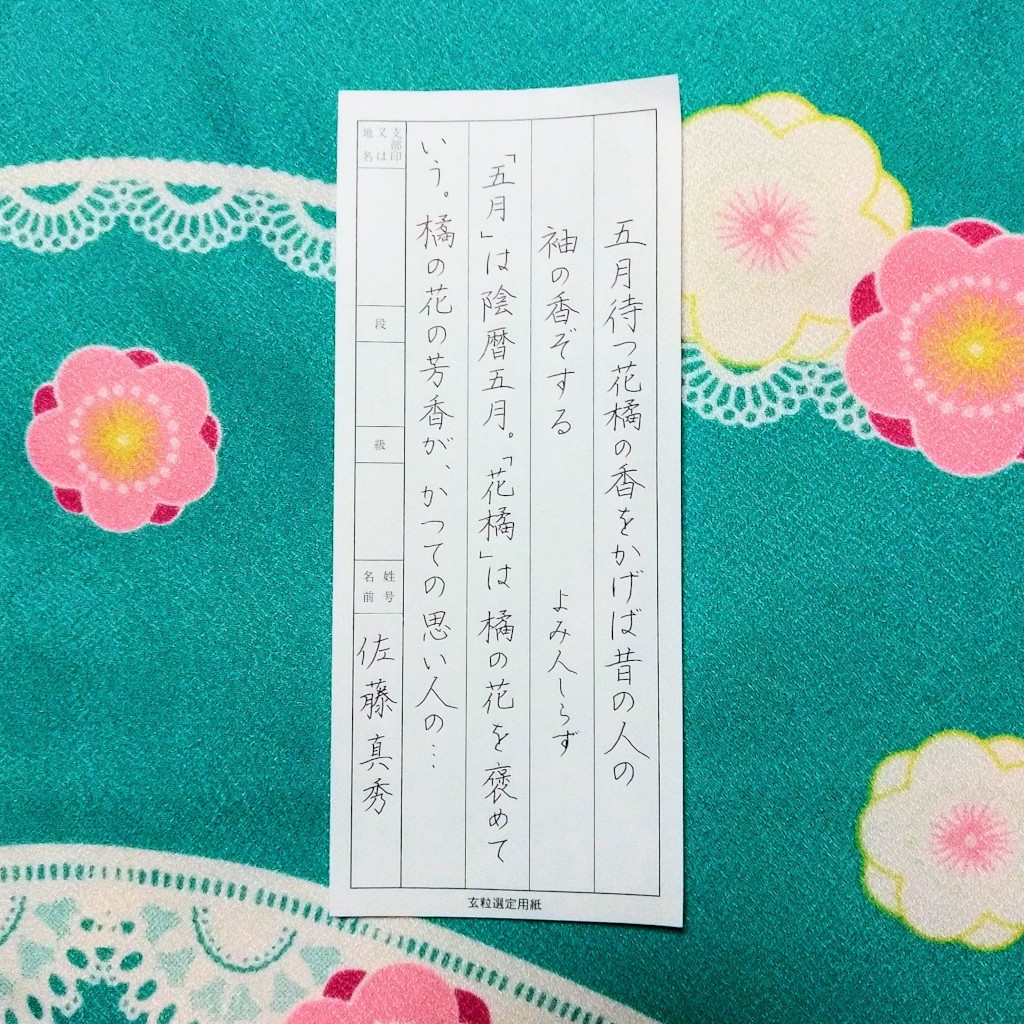 五月待つ花橘の香をかげば昔の人の
袖の香ぞする
よみ人しらず
「五月」は陰暦五月。「花橘」は橘の花を褒めて
いう。橘の花の芳香が、かつての思い人の…
支部印
又は
地名
段
級
姓号
名前
佐藤真秀
玄粒選定用紙